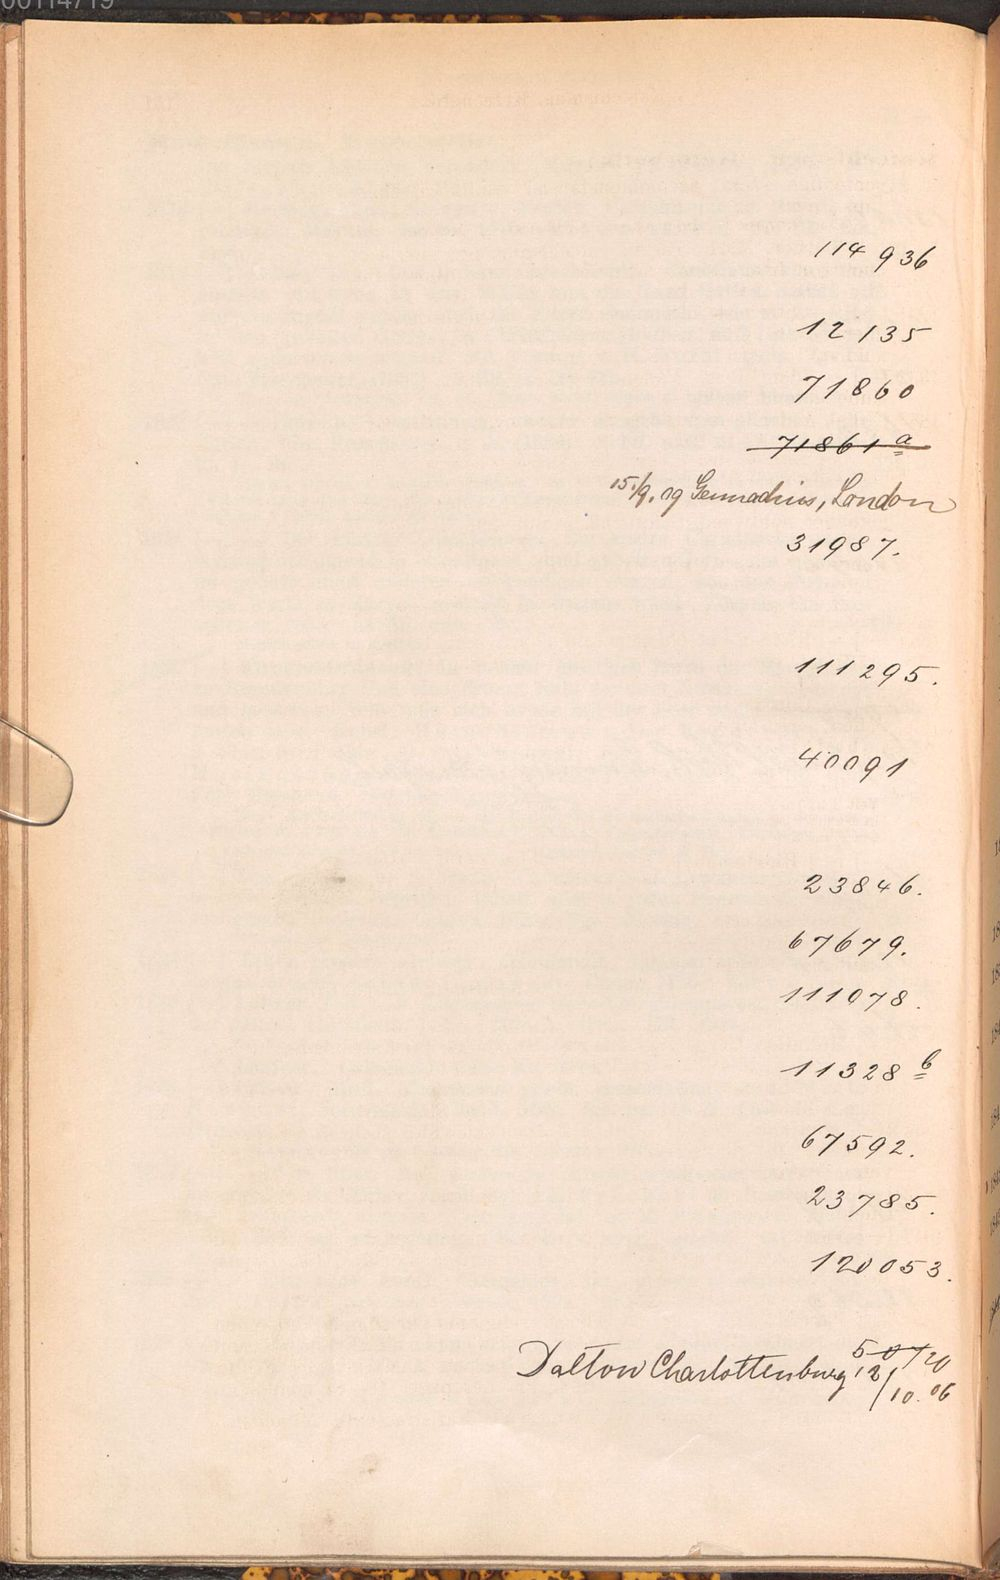 00114719
114 936
12 135
71860
71861 a
15/9. 09 Gennadius, London
31987.
111295.
40091
23846.
67679.
111078.
11328 b
67592.
23785.
120053.
50720
Dalton Charlottenburg 12/10. 06